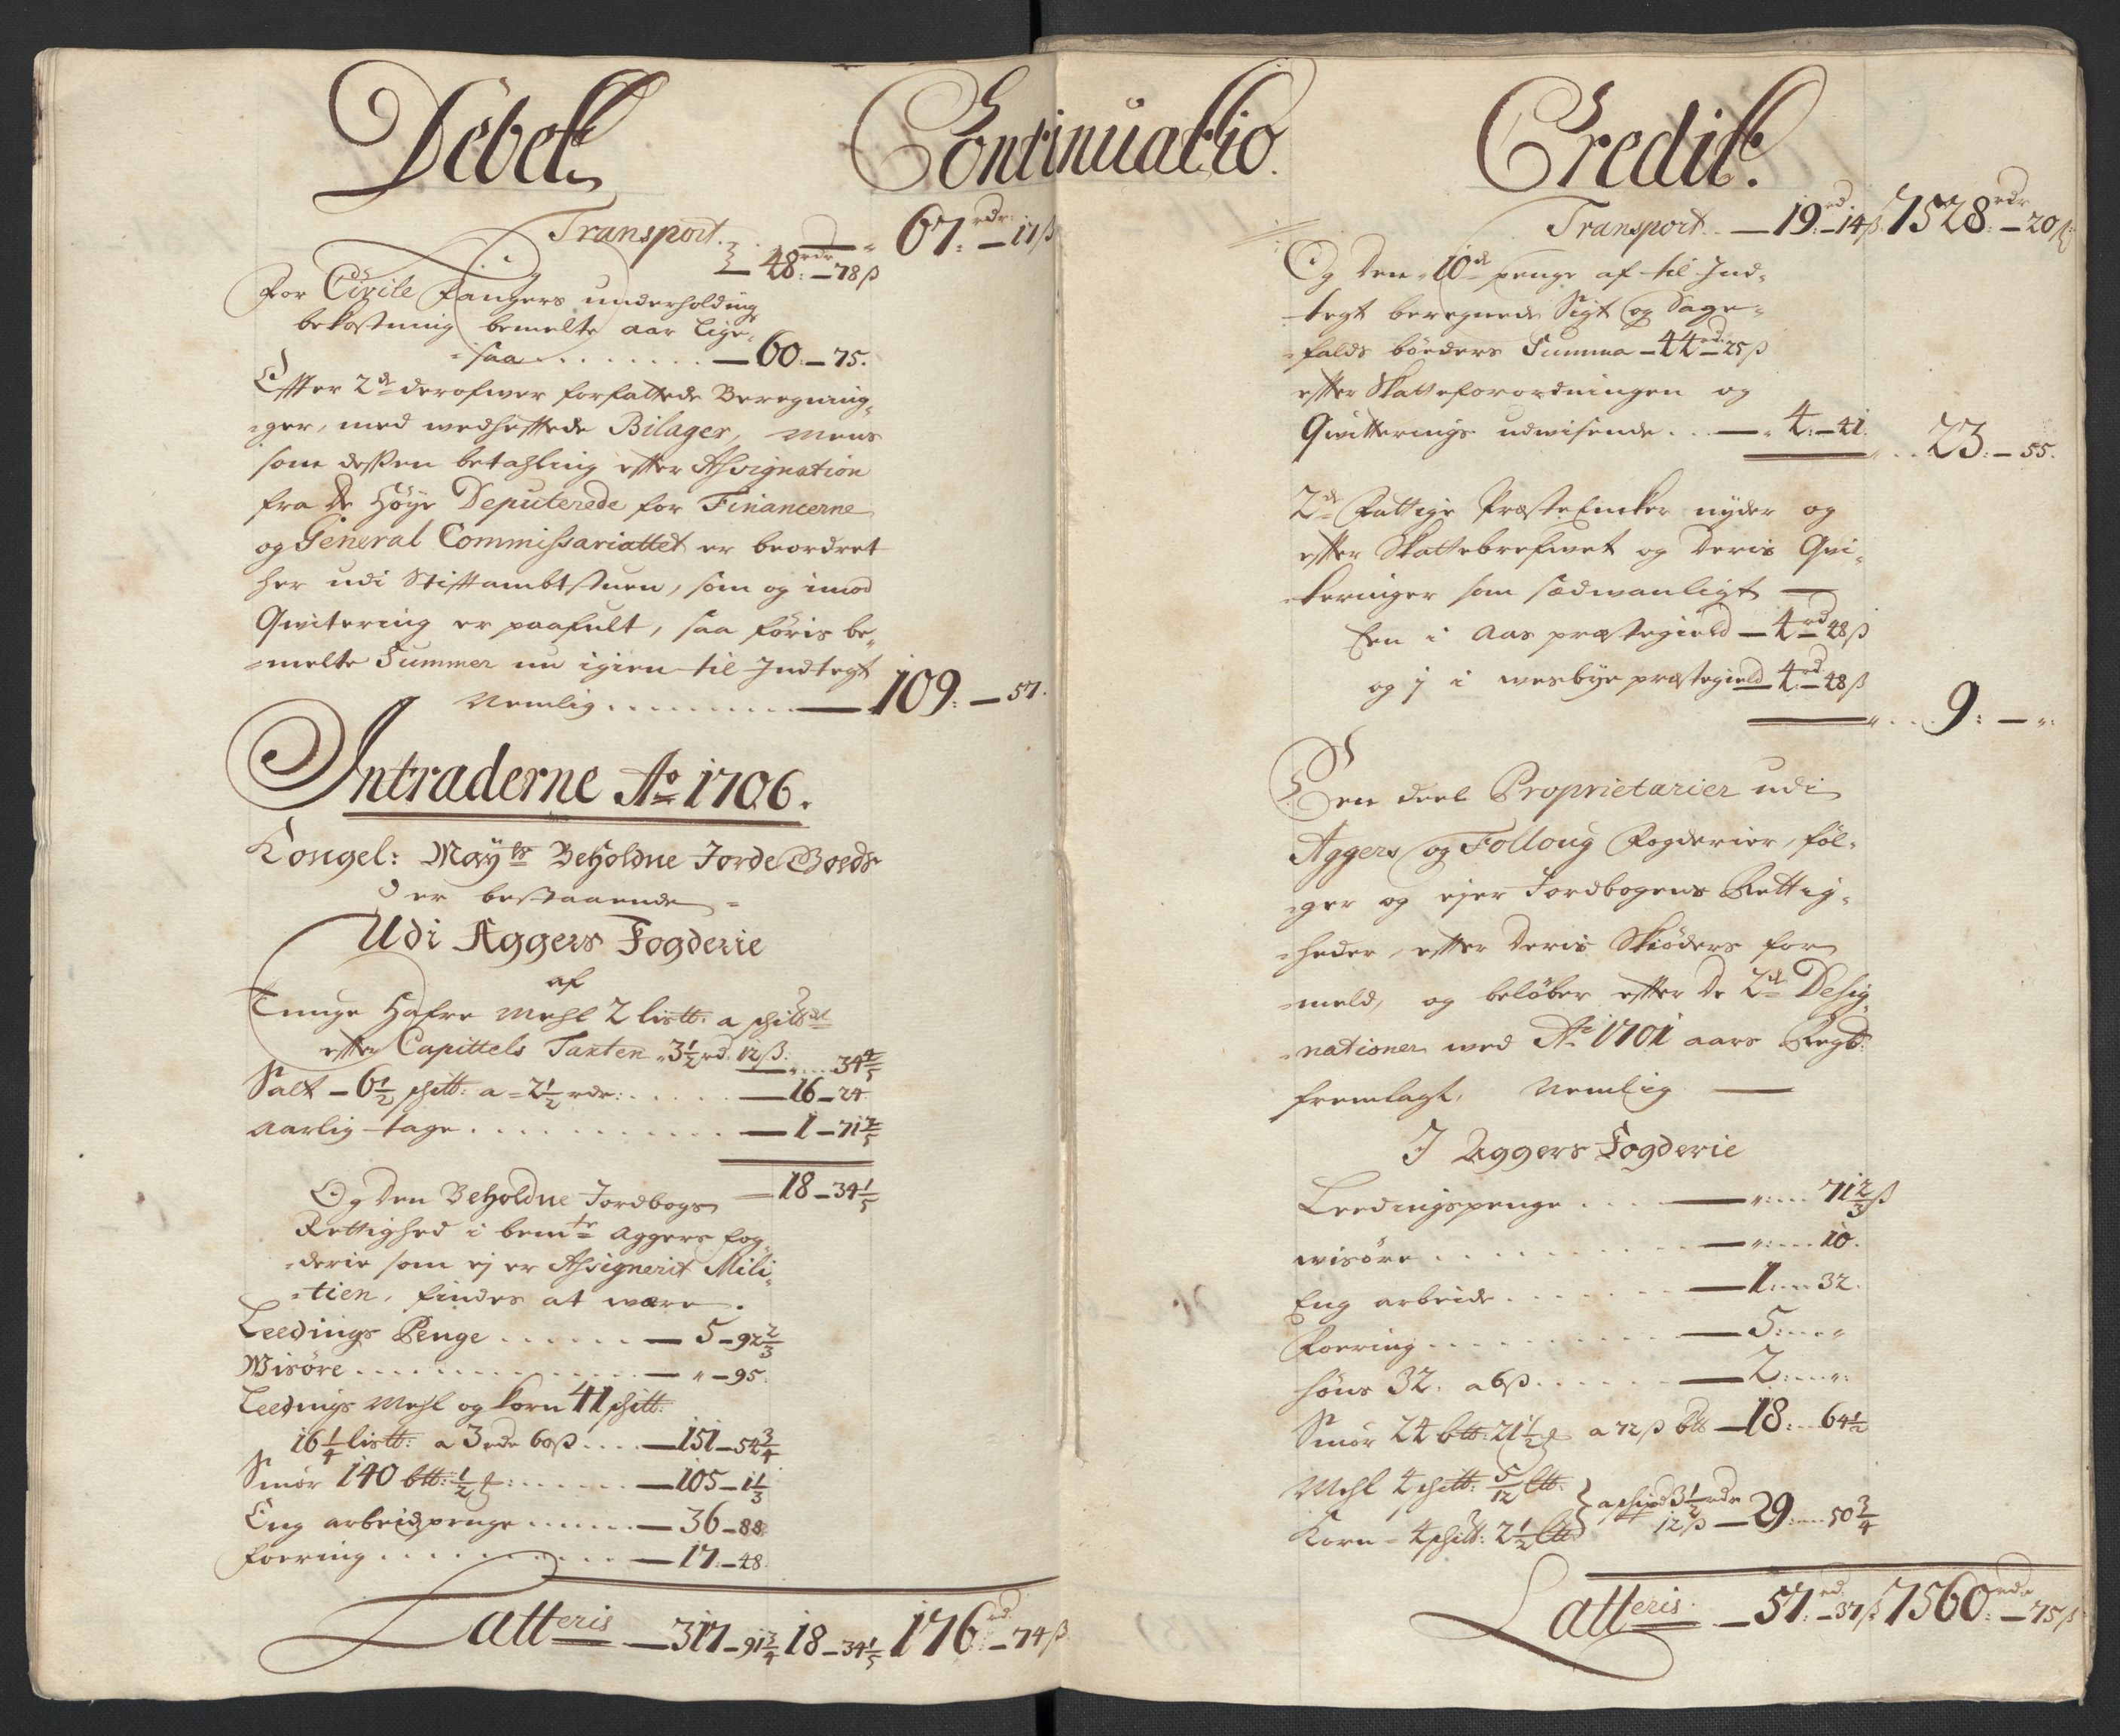 Debet Continuatio Credit.
Transport. 67: rdr — 17 ß
48: rdr — 78 ß
For Civile Fangers underholdnings
bekostning bemelte aar lige=
=saa . . . . . . . . — 60. — 75.
Effter 2de derofwer forfattede Beregning=
=ger, med wedhefftede Bilager, mens
som dessen betahling effter Assignation
fra De Høye Deputerede for Financerne
og General Commissariattet er beordret
her udi Stifftambtstuen, som og imod
Qvitering er paafult, saa føris be=
=melte Summer nu igien til Indtegt
Nemlig . . . . . . . . — 109: — 57.
Intraderne Ao 1706.
Kongel: Mayts Beholdne Jorde Goeds
er bestaaende =
Udi Aggers Fogderie
af
Tunge Hafre Mehl 2 listt: a schittdt
effter Capittels Taxten 3½ rd. 12 ß. . . . 34 4/5
Salt — 6½ schitt: a = 2½ rdr: . . . . . — 16 — 24
Aarlig tage . . . . . . . . . . — 1 — 71 2/5
— 18 — 34 1/5
Og Den Beholdne Jordbogs
Rettighed i bemte Aggers fog=
=derie som ej er Assignerit Mili=
=tien, findes at være.
Leedings Penge . . . . . . — 5 — 92 2/3
Wisøre . . . . . . . . . . — " — 95.
Leedings Mehl og Korn 41 schitt:
16¼ listt: a 3 rdr 60 ß . . . . — 151 — 54 3/4
Smør 140 btt: ½ . . . . . . — 105 — 1 1/3
Eng arbeidspenge . . . . . . — 36 — 88
Foering . . . . . . . . . . — 17. — 48.
Latteris — 317 — 91 3/4 18 — 34 1/5 176 rd. — 74 ß
Transport. — 19: rd — 14 ß. 7528: rdr — 20 ß
Og Den 10de penge af til Ind=
=tegt beregnede Sigt og Sage=
=falds böeders Summa — 44 rd: 25 ß
effter Skatteforordningen og
Qvitterings udwisende . . . — 4: — 41. . . 23: — 55.
2de Fattige Præste Encker nyder og
effter Skattebrefwet og Deris Qvi=
=teringer som sædwanligt —
Een i Aas prestegield — 4 rd 48 ß
og 1 i wesbye prestegield — 4 rd 48 ß
9: — ":
Een deel Proprietarier udi
Aggers og Folloug Fogderier, föl=
=ger og ejer Jordbogens Rettig=
=heder, effter Deris Skiöders for
=meld, og belöber effter De 2de Desig=
=nationer med Ao 1701 aars Regsk:
fremlagt, Nemlig —
I Aggers Fogderie
Leedingspenge . . . . — ": . . 71 2/3 ß
wisöre . . . . . . . . . — ": . . 10.
Eng arbeide . . . . . . . — 1: . . 32.
Foering . . . . . . . . . — 5: . . "
höns 32. a 6 ß. . . . . . — 2: . . ":
Smör 24 btt: 21½ a 72 ß btt — 18: . . 64½
Mehl 4 schitt: 5/12 ltt:
Korn = 4 schitt: 2½ ltt a schipd 3½ rdr 12 ß — 29: . . . 50 3/4
Latteris. — 57: rd. — 37 ß. 7560: rdr — 75 ß